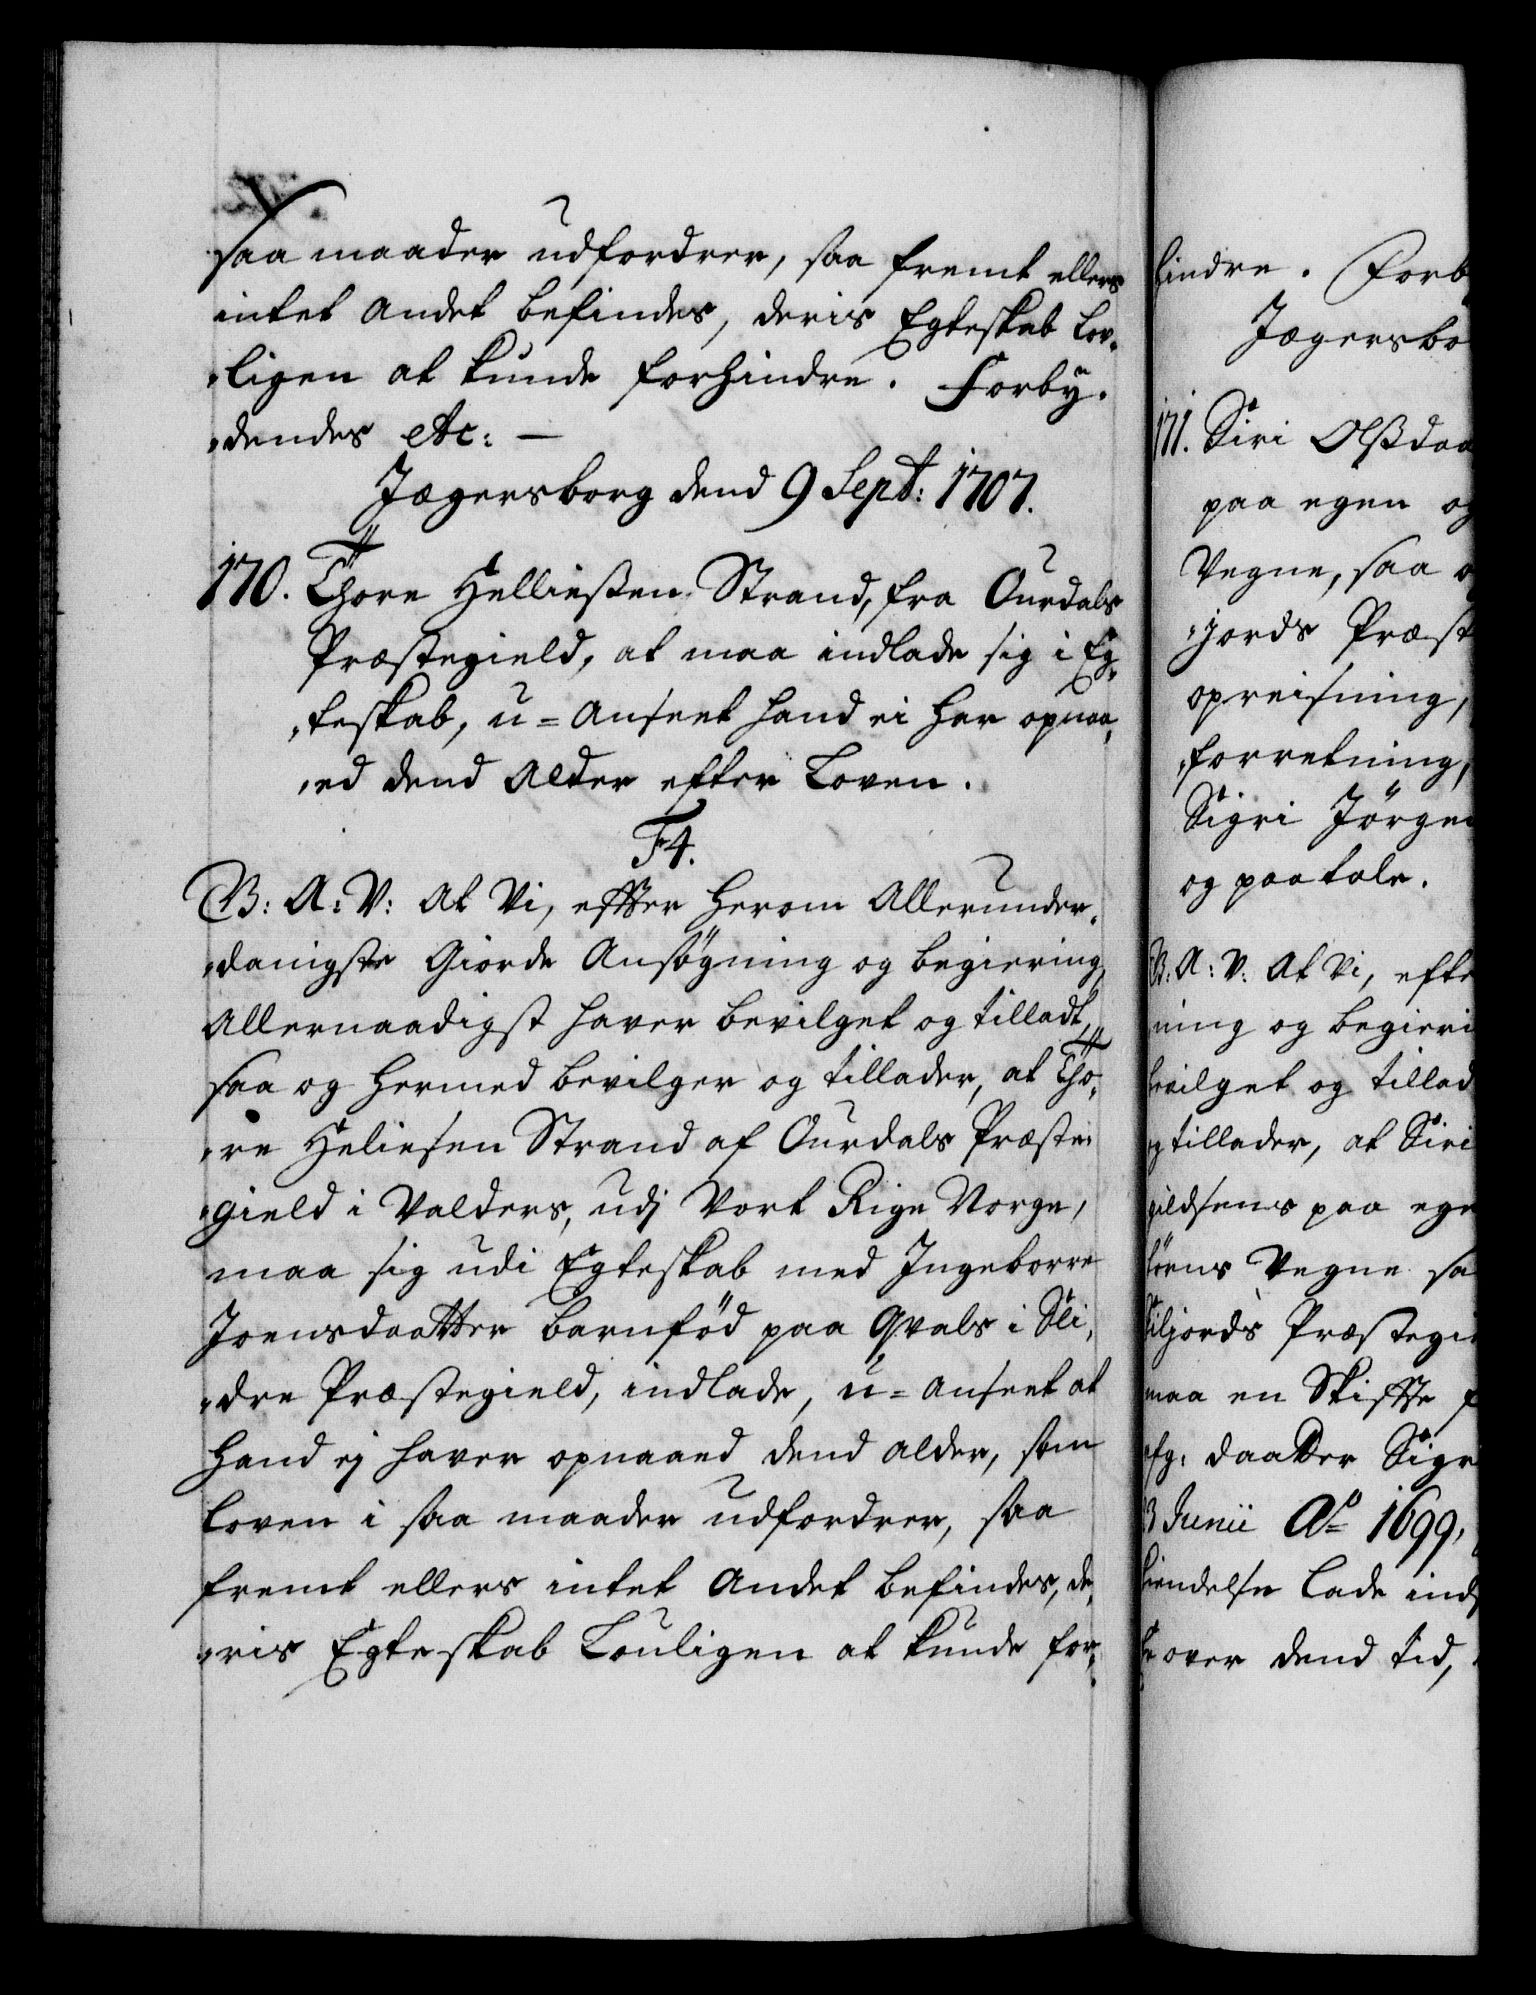 saa maader udfordrer, saa fremt ellers
intet andet befindes, deris Egteskab lov-
„ligen at kunde forhindre. Forby-
„dendes etc: —
Jægersborg dend 9 Sept: 1707.
170. Thore Helließen Strand, fra Ourdals
Præstegield, at maa indlade sig i Eg-
„teskab, u=anseet hand ei har opnaa-
„ed dend Alder efter Loven.
F4.
B: A: V: At Vi, efter herom Allerunder-
„danigste Giorde Ansøgning og begiering,
Allernaadigst haver bevilget og tilladt,
saa og hermed bevilger og tillader, at Tho-
„re Heliesen Strand af Ourdals Præste-
„gield i Valders, udj Vort Rige Norge,
maa sig udi Egteskab med Ingeborre
Joensdaatter barnfød paa Qvals i Sli-
„dre Præstegield, indlade, u=anseet at
hand ej haver opnaaed dend alder, som
loven i saa maader udfordrer, saa
fremt ellers intet andet befindes, de-
„ris Egteskab Louligen at kunde for-
hindre. Forb
Jægersbo
171. Siri Olßdaa
paa egen og
Vegne, saa o
„jords Præst
opreisning,
„forretning,
Sigri Jörge
og paatale.
B: A: V: At Vi, efte
ning og begieri
bevilget og tillad
og tillader, at Siri
gildsens paa ege
törens Vegne sa
Siljords Præstegi
maa en Skifte f
afg: daatter Sigri
3 Junii Ao 1699,
kiendelse lade ind
over dend tid,